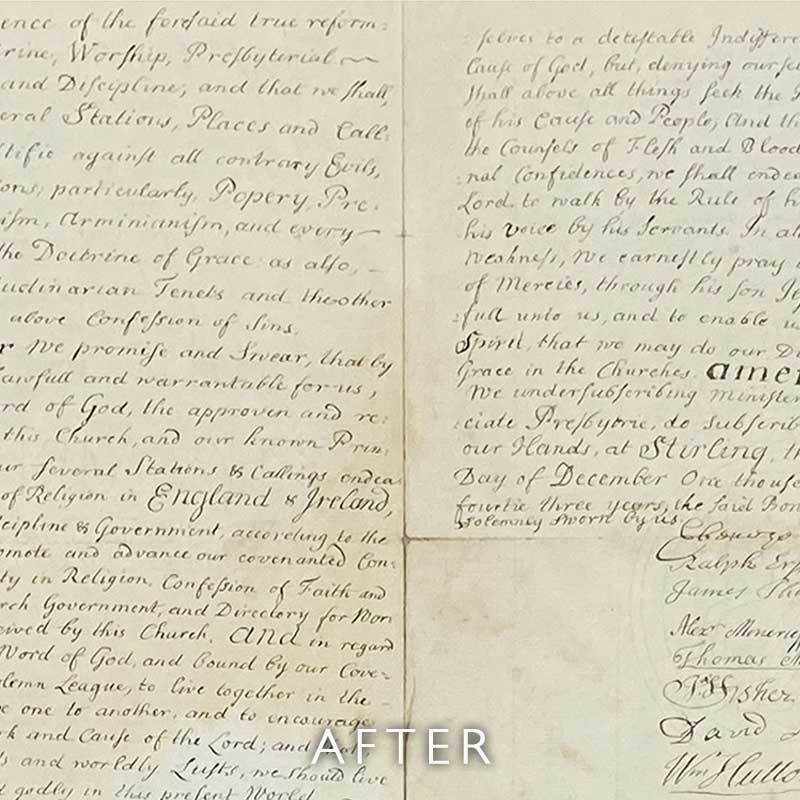 ence of the foresaid true reform:
trine, Worship, Presbyterial
and Discipline; and that we shall,
eral Stations, Places and Call:
stifie against all contrary Evils,
ons; particularly, Popery, Pre:
ism, Arminianism, and every
the Doctrine of Grace: as also,
tudinarian Tenets and the other
above Confession of Sins.
r We promise and Swear, that by
lawfull and warrantable for us,
ord of God, the approven and re:
this Church, and our known Prin:
ur several Stations & Callings endea:
of Religion in England & Ireland,
scipline & Government, according to the
omote and advance our covenanted Con:
ty in Religion, Confession of Faith and
rch Government, and Directory for Wor:
eived by this Church. And in regard
Word of God, and bound by our Cove:
olemn League, to live together in the
ve one to another, and to encourage
rk and Cause of the Lord; and
s and worldly Lusts, we should live
d godly in this present World
selves to a detestable Indiffere
Cause of God, but, denying our sel
shall above all things seek the
of his Cause and People; And th
the Counsels of Flesh and Blood
:nal Confidences, we shall endea
Lord, to walk by the Rule of h
his voice by his Servants. In al
Weakness, We earnestly pray
of Mercies, through his Son Je
:full unto us, and to enable u
Spirit, that we may do our D
Grace in the Churches. amen
We undersubscribing Minister
:ciate Presbytrie, do subscrib
our Hands, at Stirling, th
Day of December One thous
fourtie three years, the said Bon
solemnly sworn by us
Ralph Ers
James Tho
Alexr Moncrieff
Thomas
Fisher
David
Wm Hutto
AFTER